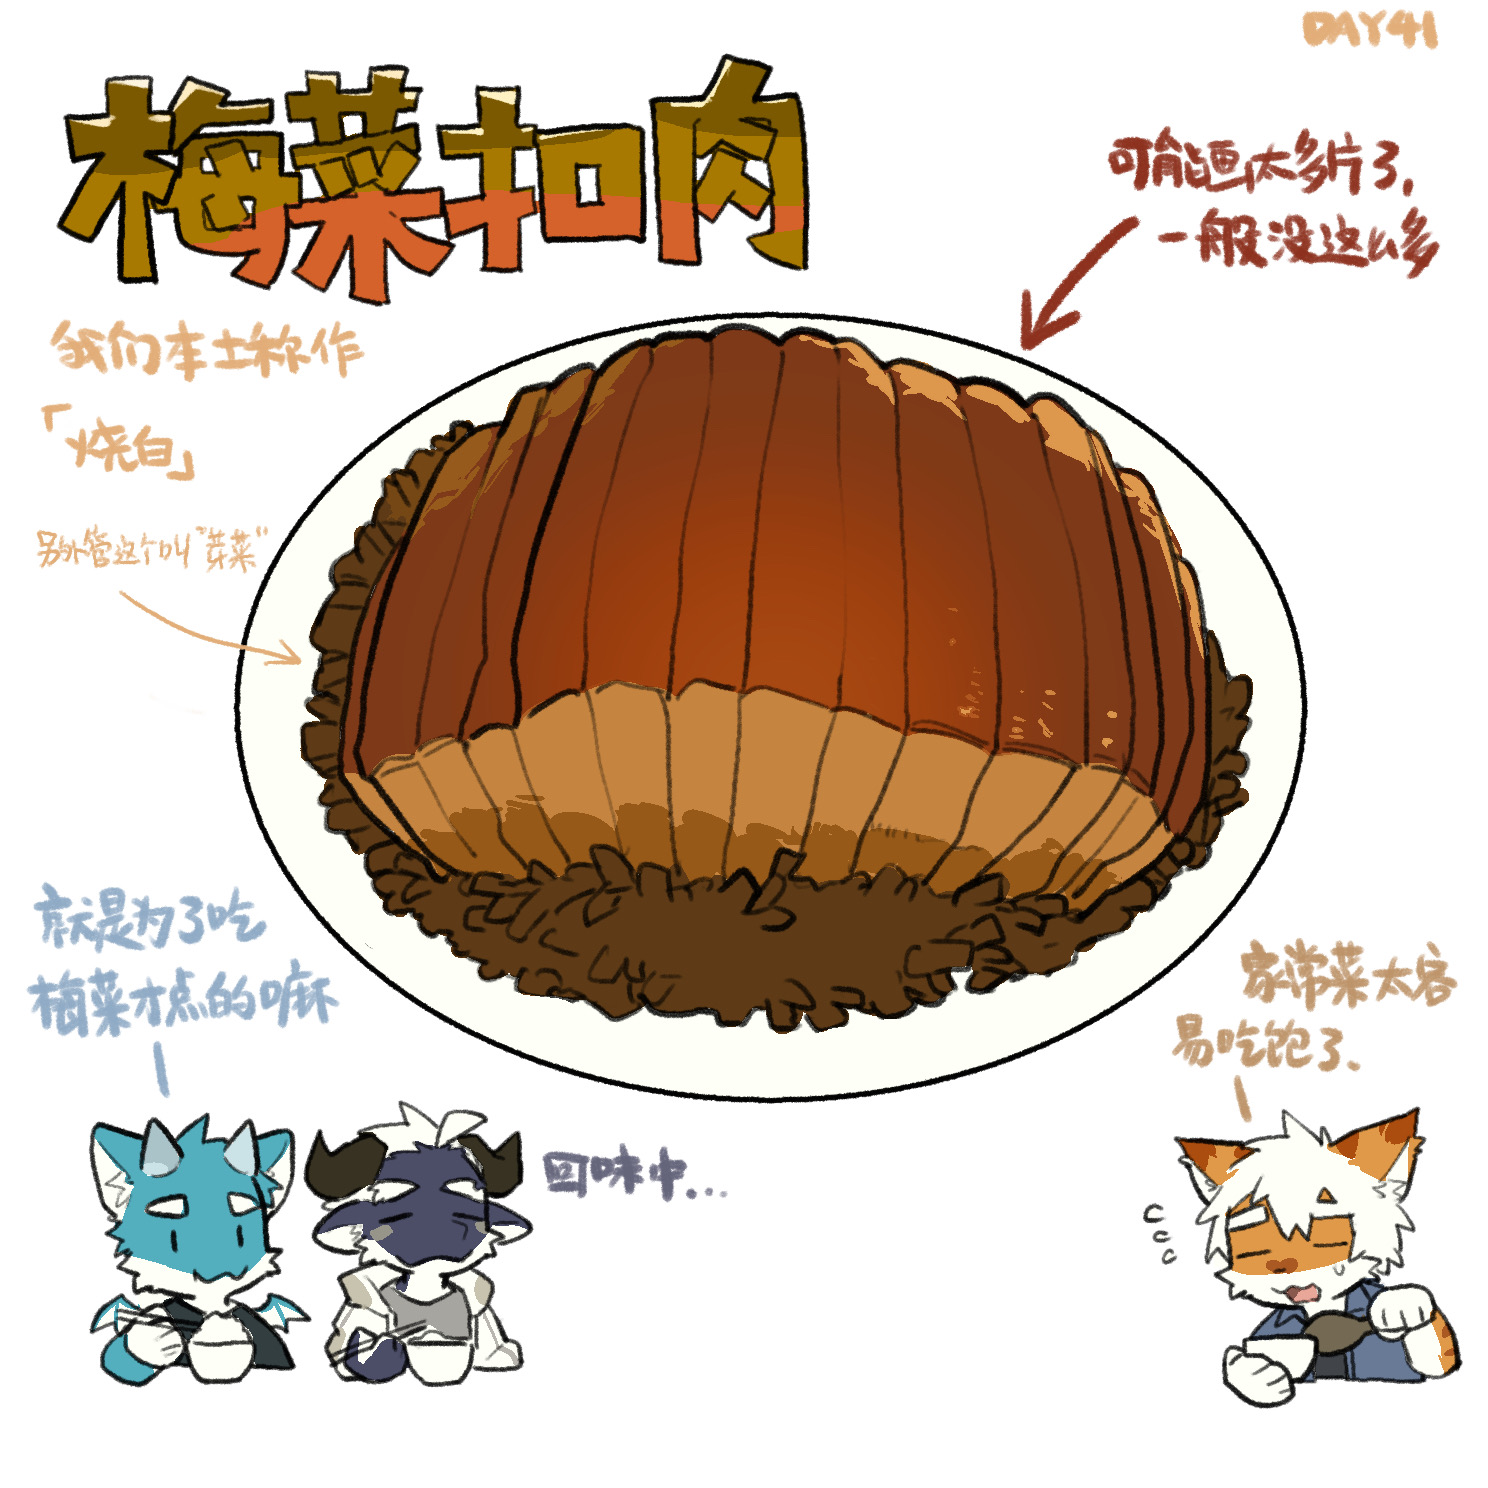 DAY41
梅菜扣肉
可能画太多片了,
一般没这么多
我们本土称作
「烧白」
另外管这个叫"芽菜"
就是为了吃
梅菜才点的嘛
回味中...
家常菜太容
易吃饱了、